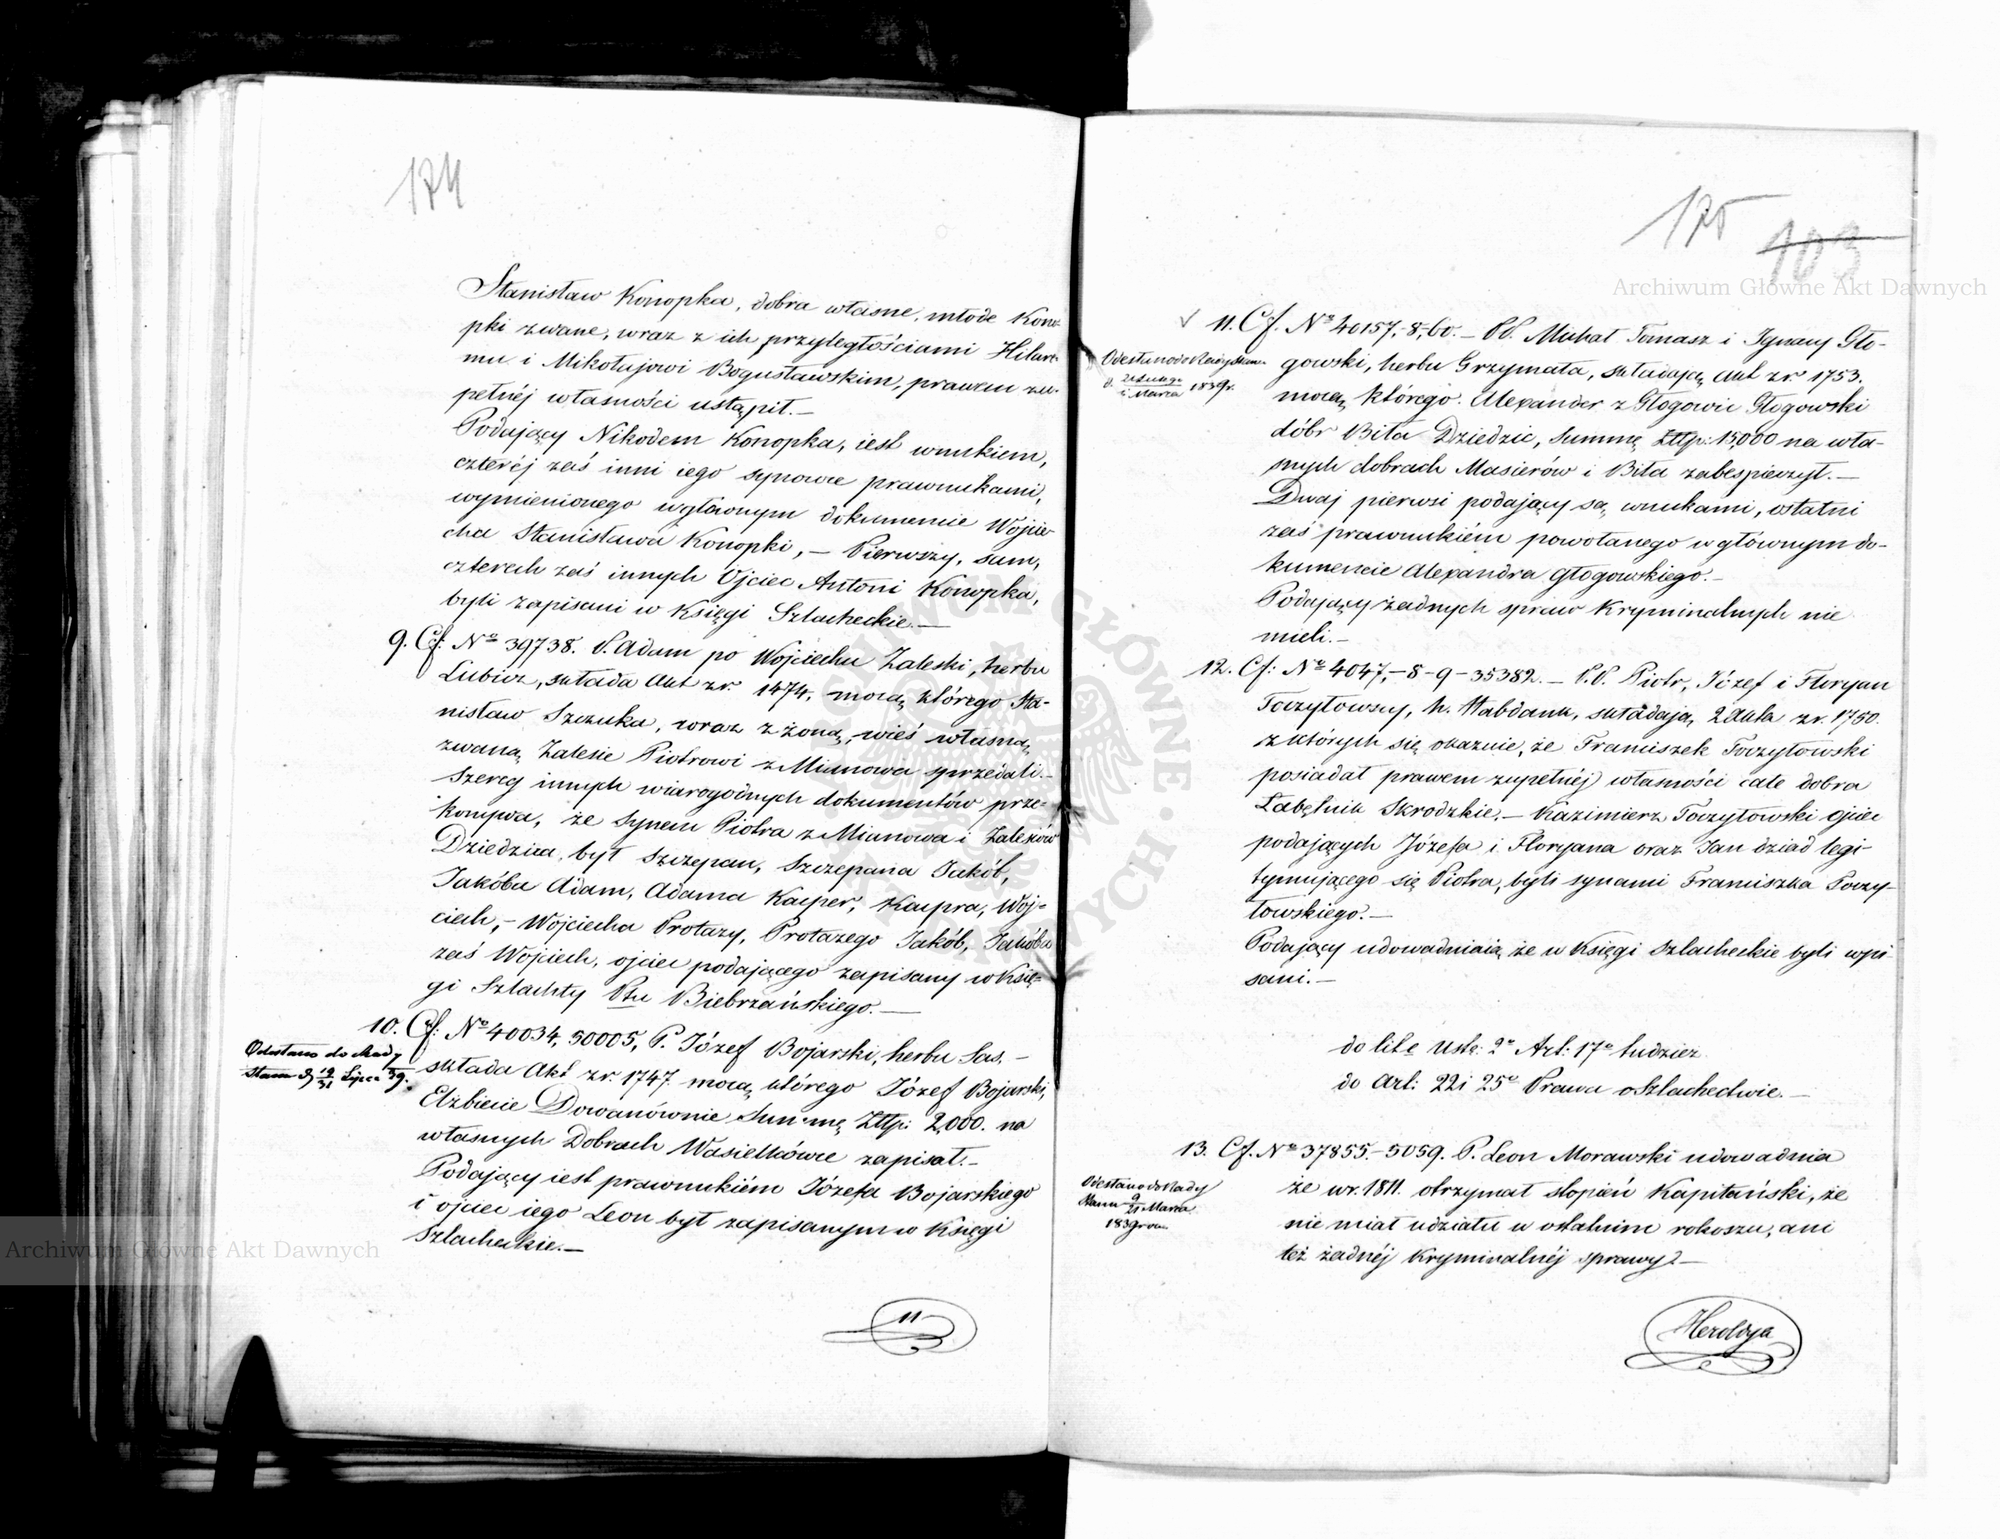 174
Stanisław Konopka, dobra własne, młode Kono-
pki zwane, wraz z ich przyległościami Hilare-
mu i Mikołajowi Bogusławskim, prawem zu-
pełnéj własności ustąpił.—
Podający Nikodem Konopka, iest wnukiem,
czteréj zaś inni iego synowie prawnukami,
wymienionego w głównym dokumencie Wojcie-
cha Stanisława Konopki,— Pierwszy, sam,
czterech zaś innych Ojciec Antoni Konopka,
byli zapisani w Księgi Szlacheckie.—
9. Cf: No 39738. P. Adam po Wojciechu Zaleski, herbu
Lubicz, składa Akt zr. 1474, mocą którego Sta-
nisław Szczuka, wraz z żoną, wieś własną,
zwaną Zalesie Piotrowi z Mianowa sprzedali.—
Szereg innych wiarogodnych dokumentów prze-
konywa, że synem Piotra z Mianowa i Zalesiów
Dziedzica, był Szczepan, Szczepana Jakób,
Jakóba Adam, Adama Kasper, Kaspra, Woj-
ciech,- Wojciecha Protazy, Protazego Jakób, Jakóba
zaś Wojciech, ojciec podającego zapisany w Księ-
gi Szlachty Ptu Biebrzańskiego.—
10. Cf: No 40034, 50005, P. Józef Bojarski, herbu Sas.-
Odesłano do Rady
Stanu d 19/31 Lipca 39.
składa Akt zr. 1747. mocą którego Józef Bojarski,
Elżbiecie Dowanównie Summę Złtp: 2,000. na
własnych Dobrach Wasielkówce zapisał.—
Podający iest prawnukiém Józefa Bojarskiego
i ojciec iego Leon był zapisanym w Księgi
Szlacheckie.—
11
175
103
Archiwum Główne Akt Dawnych
11. Cf. No 40157,-8,-60.- PP. Michał Tomasz i Ignacy Gło-
Odesłano do Rady Stanu
d. Marca 1839r.
gowski, herbu Grzymała, składają Akt zr. 1753.
mocą którego. Alexander z Głogowie Głogowski
dóbr Biła Dziedzic, Summę Złtp: 15,000 na wła-
snych dobrach Masierów i Biła zabespieczył.—
Dwaj pierwsi podający są wnukami, ostatni
zaś prawnukiém powołanego w głównym do-
kumencie Alexandra Głogowskiego.—
Podający żadnych spraw Kryminalnych nie
mieli.—
12. Cf: No 4047,-8-9-35382.- P.P. Piotr, Józef i Floryan
Toczyłowscy, h. Habdank, składają 2 Akta zr. 1750.
z których się okazuie, że Franciszek Toczyłowski
posiadał prawem zupełnéj własności całe dobra
Łabętnik Skrodzkie.— Kazimierz Toczyłowski ojciec
podających Józefa i Floryana oraz Jan dziad legi-
tymującego się Piotra, byli synami Franciszka Toczy-
łowskiego.—
Podający udowadniaią że w Księgi Szlacheckie byli wpi-
sani.—
do lit: Ustę: 2o Art: 17o tudzież
do Art: 22 i 25o Prawa o Szlachectwie.—
13. Cf. No 37855.-5059. P. Leon Morawski udowadnia
Odesłano do Rady
Stanu 9/21 Marca
1839 roku
że wr. 1811. otrzymał stopień Kapitański, że
nie miał udziału w ostatnim rokoszu, ani
też żadnéj Kryminalnéj sprawy.—
Heroldya
Archiwum Główne Akt Dawnych